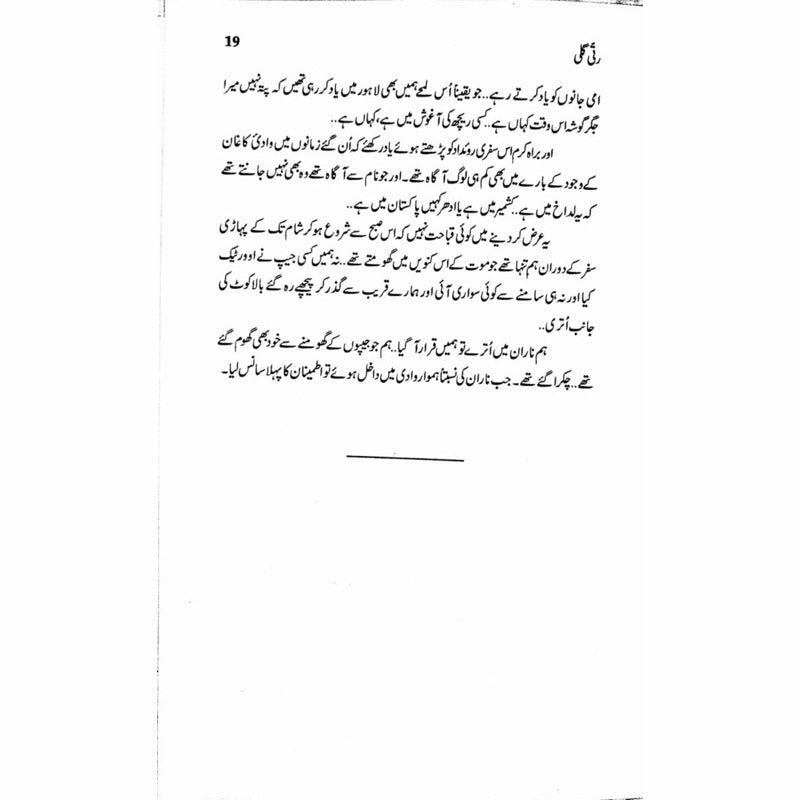 رتی گلی
19
امی جانوں کو یاد کرتے رہے.. جو یقیناً اُس لمحے ہمیں بھی لاہور میں یاد کر رہی تھیں کہ پتہ نہیں میرا
جگر گوشہ اس وقت کہاں ہے.. کسی ریچھ کی آغوش میں ہے، کہاں ہے..
اور براہ کرم اس سفری روئداد کو پڑھتے ہوئے یاد رکھئے کہ اُن گئے زمانوں میں وادیٔ کاغان
کے وجود کے بارے میں بھی کم ہی لوگ آگاہ تھے۔ اور جو نام سے آگاہ تھے وہ بھی نہیں جانتے تھے
کہ یہ لداخ میں ہے.. کشمیر میں ہے یا ادھر کہیں پاکستان میں ہے..
یہ عرض کر دینے میں کوئی قباحت نہیں کہ اس صبح سے شروع ہو کر شام تک کے پہاڑی
سفر کے دوران ہم تنہا تھے جو موت کے اس کنویں میں گھومتے تھے.. نہ ہمیں کسی جیپ نے اوورٹیک
کیا اور نہ ہی سامنے سے کوئی سواری آئی اور ہمارے قریب سے گذر کر پیچھے رہ گئے بالاکوٹ کی
جانب اُتری..
ہم ناران میں اُترے تو ہمیں قرار آ گیا.. ہم جو جیپوں کے گھومنے سے خود بھی گھوم گئے
تھے.. چکرا گئے تھے۔ جب ناران کی نسبتاً ہموار وادی میں داخل ہوئے تو اطمینان کا پہلا سانس لیا۔